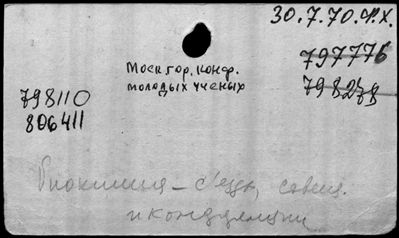 30.7.70.Ф.Х.
797776
798278
Моск гор. конф.
молодых ученых
798110
806411
Биохимия – съезды, совещ.
и конференции